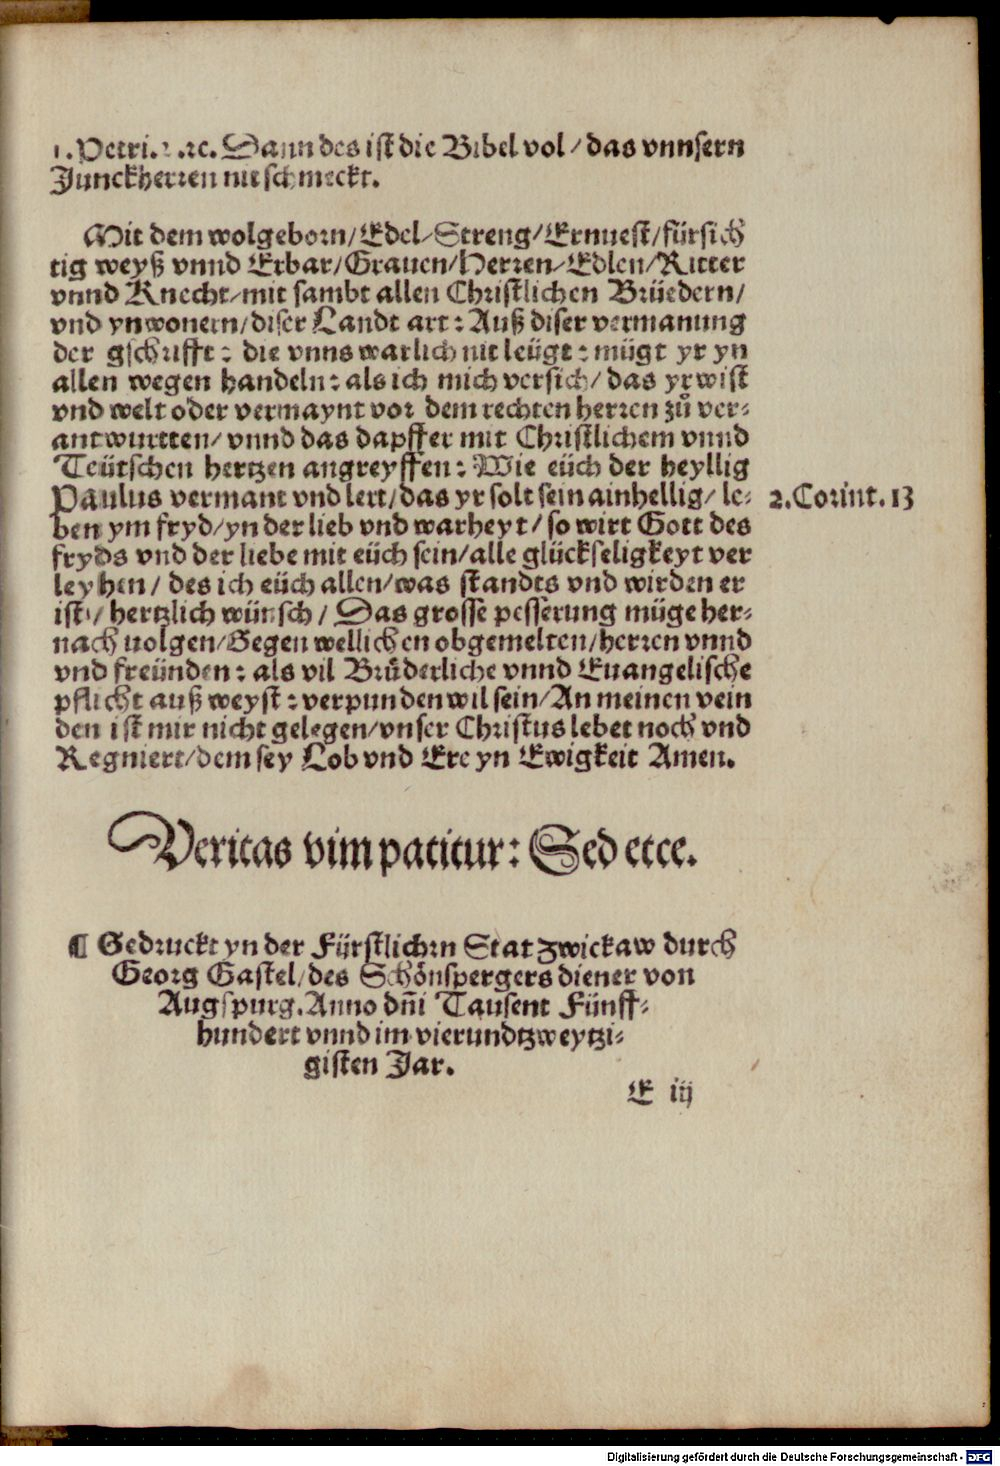 1. Petri. 2. ꝛc. Dann des ist die Bibel vol / das vnnsern
Junckherren nit schmeckt.
Mit dem wolgeborn / Edel / Streng / Ernuest / fürsich
tig weyß vnnd Erbar / Grauen / Herren / Edlen / Ritter
vnnd Knecht / mit sambt allen Christlichen Brüedern /
vnd ynwonern / diser Landt art : Auß diser vermanung
der gschrifft : die vnns warlich nit leügt : mügt yr yn
allen wegen handeln : als ich mich versich / das yr wist
vnd welt oder vermaynt vor dem rechten herren zů ver⸗
antwurtten / vnnd das dapffer mit Christlichem vnnd
Teütschen hertzen angreyffen : Wie eüch der heyllig
Paulus vermant vnd lert / das yr solt sein ainhellig / le⸗
2. Corint. 13
ben ym fryd / yn der lieb vnd warheyt / so wirt Gott des
fryds vnd der liebe mit eüch sein / alle glückseligkeyt ver
leyhen / des ich eüch allen / was standts vnd wirden er
ist / hertzlich wünsch / Das grosse pesserung müge her⸗
nach uolgen / Gegen wellichen obgemelten / herren vnnd
vnd freünden : als vil Brůderliche vnnd Euangelische
pflicht auß weyst : verpunden wil sein / An meinen vein
den ist mir nicht gelegen / vnser Christus lebet noch vnd
Regniert / dem sey Lob vnd Ere yn Ewigkeit Amen.
Veritas vim patitur : Sed etce.
¶ Gedruckt yn der Fürstlichrn Stat Zwickaw durch
Georg Gastel / des Schönspergers diener von
Augspurg. Anno dn̄i Tausent Fünff⸗
hundert vnnd im vierundtzweytzi⸗
gisten Jar.
E iij
Digitalisierung gefördert durch die Deutsche Forschungsgemeinschaft - DFG